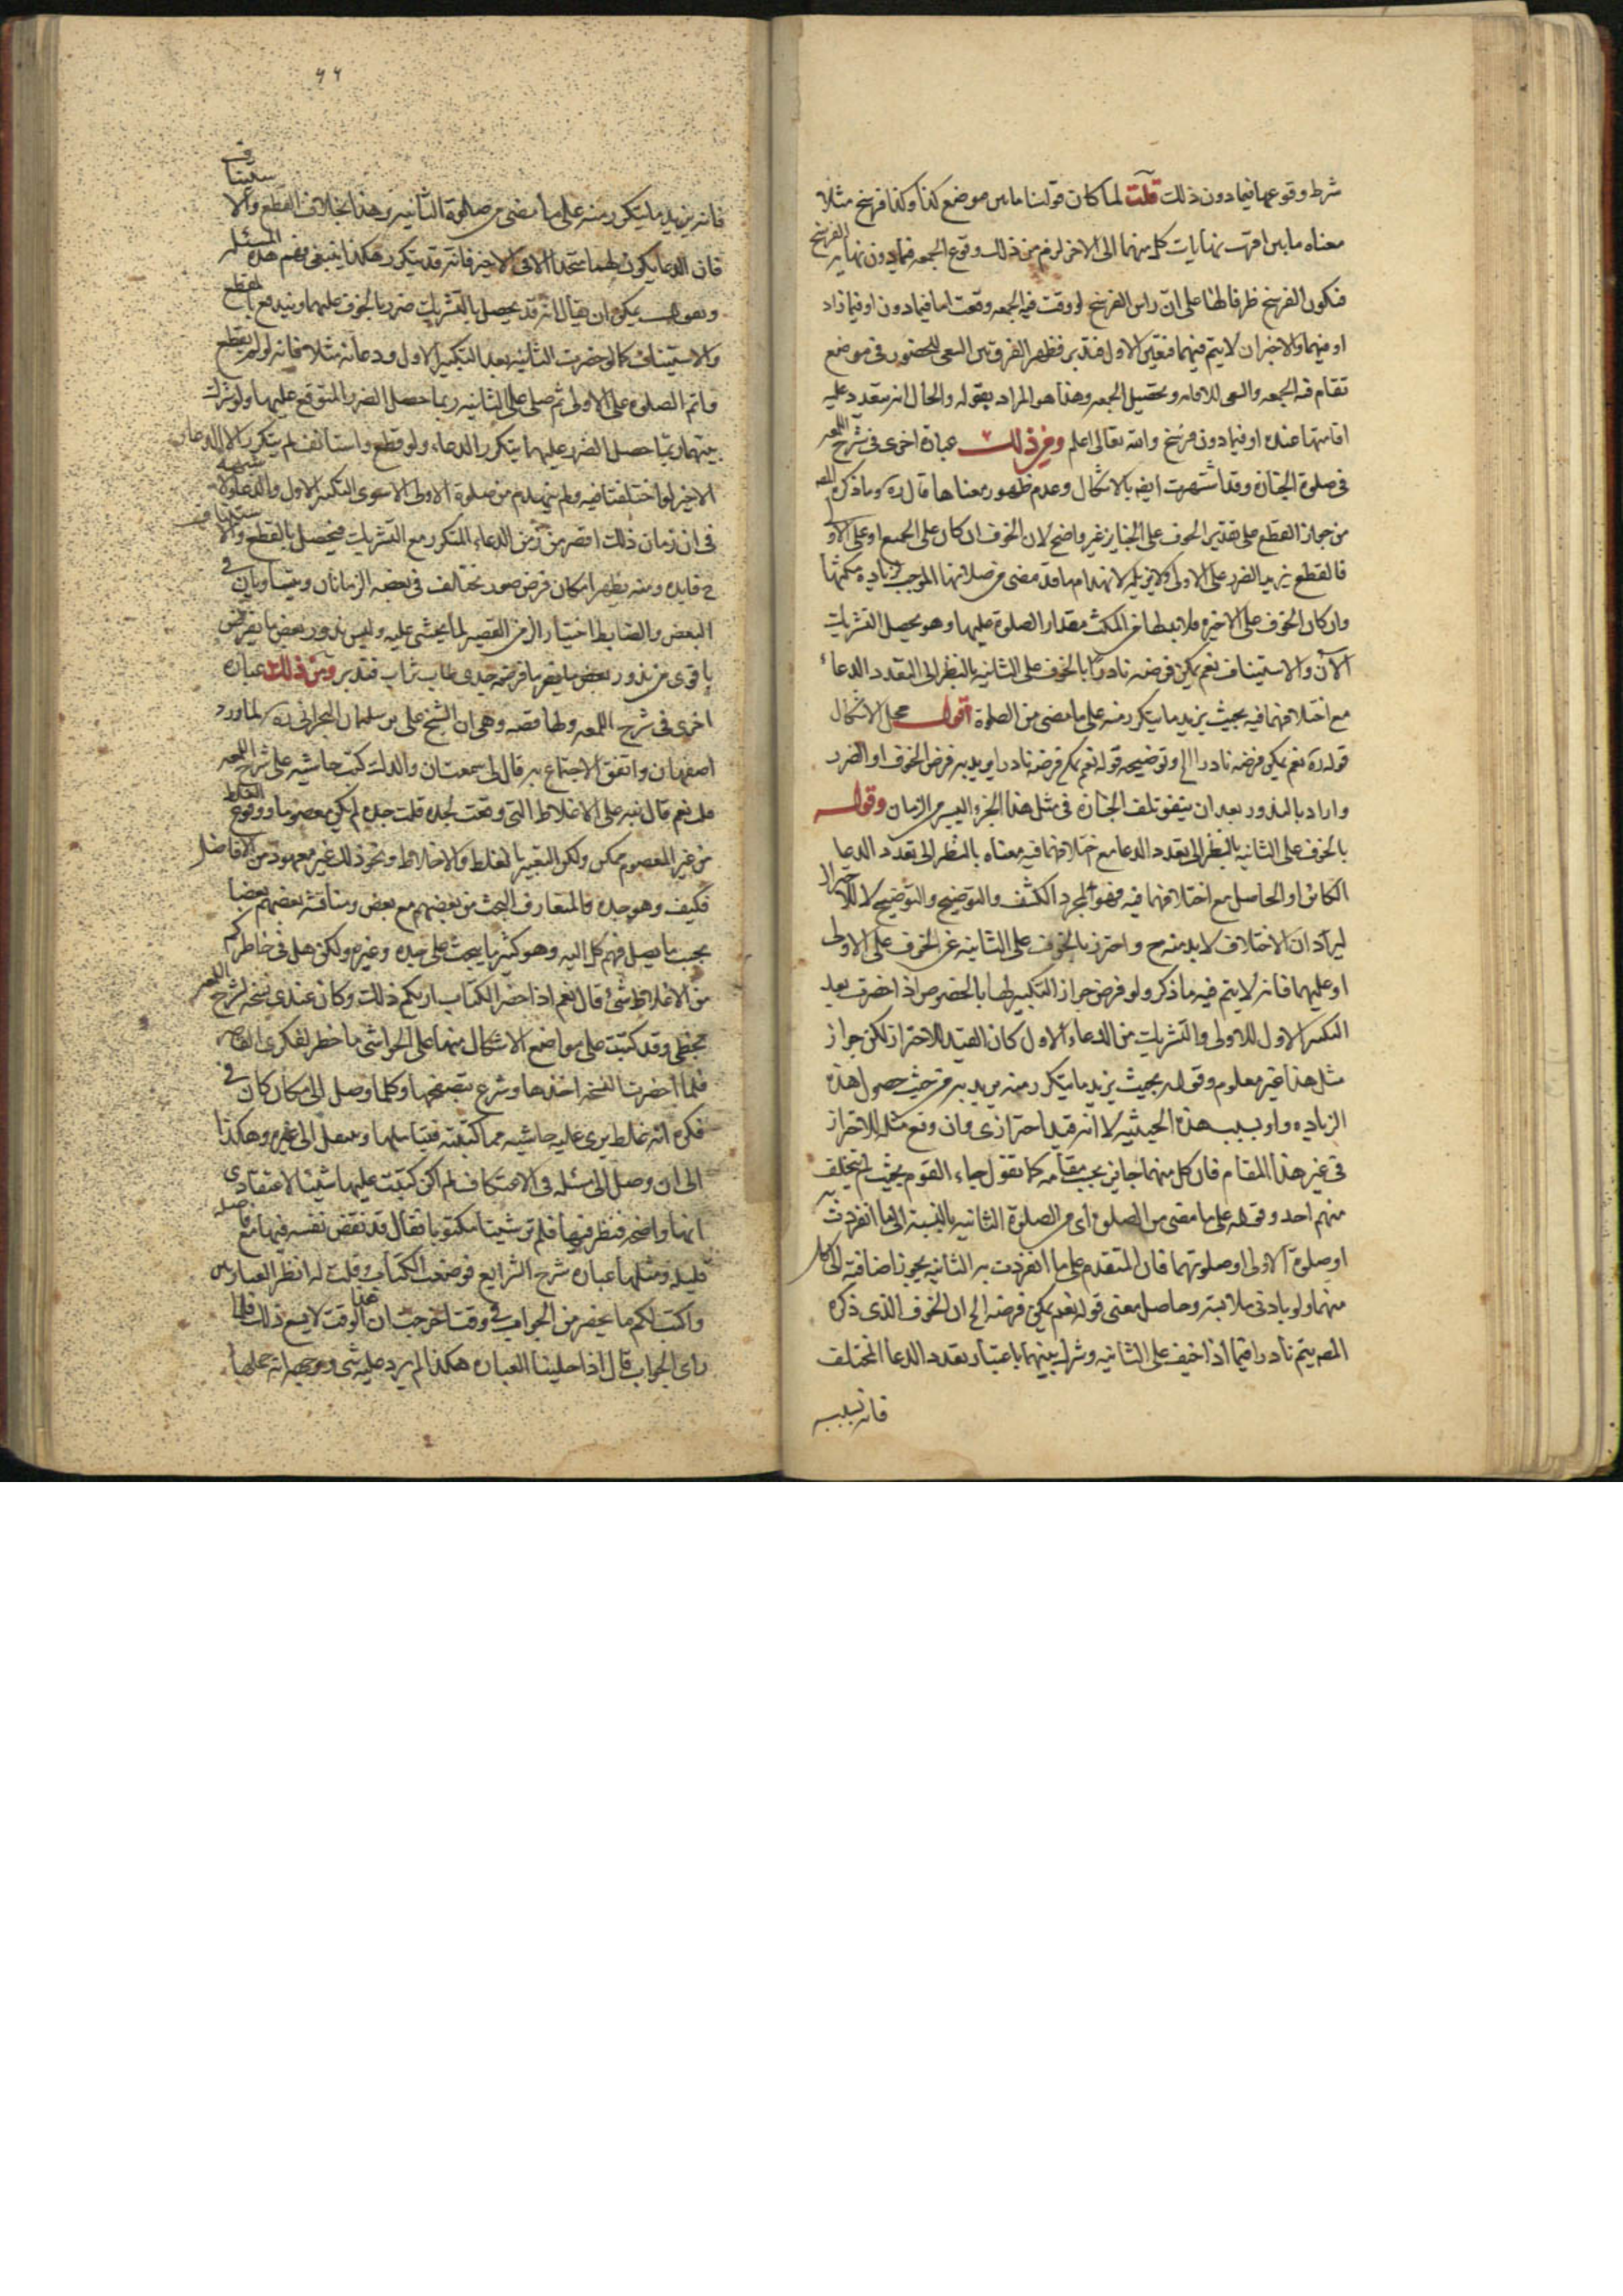 شرط وقوعهما فيما دون ذلك قلت لما كان قولنا ما بين موضع كذا وكذا فرسخ مثلا
معناه ما بين اقرب نهايات كل منهما الى الاخر لزم من ذلك وقوع الجمعه فيما دون نهايه الفرسخ
فيكون الفرسخ ظرفا لهنا على ان راس الفرسخ لو وقعت فيه الجمعه وقعت اما فيما دون او فيما زاد
او فيهما والاخيران لا يتم فيهما فتعين الاول فتدبر فظهر الفرق بين السعى للحضور فى موضع
تقام فيه الجمعه والسعى للاقامه وتحصيل الجمعه وهذا هو المراد بقوله والحال انه يتعدد عليه
اقامتها عنده او فيما دون فرسخ والله تعالى اعلم ومن ذلك عبارة اخرى فى شرح اللمعه
فى صلوة الجنازه وقد اشتهرت ايضا بالاشكال وعدم ظهور معناها قال ره وما ذكره المص
من جواز القطع على تقدير الخوف على الجنايز غير واضح لان الخوف ان كان على الجميع او على الاو
فالقطع يزيد الضرر على الاولى ولا يزيله لانهدام ما قد مضى من صلاتها الموجب لزياده مكثها
وان كان الخوف على الاخيره فلا بد لها من المكث مقدار الصلوة عليها وهو يحصل بالتشريك
الآن والاستيناف نعم يمكن فرضه نادرا بالخوف على الثانيه بالنظر الى تعدد الدعاء
مع اختلافهما فيه بحيث يزيد ما يتكرر منه على ما مضى من الصلوة اقول محل الاشكال
قوله ره نعم يمكن فرضه نادرا الخ وتوضيحه قوله نعم يمكن فرضه نادرا يريد به فرض الخوف او الضرر
واراد بالندور بعد ان يتفق تلف الجنازه فى مثل هذا الجزء اليسير من الزمان وقوله
بالخوف على الثانيه بالنظر الى تعدد الدعا مع اختلافهما فيه معناه بالنظر الى تعدد الدعا
الكائن او الحاصل مع اختلافهما فيه فهو لمجرد الكشف والتوضيح والتوضيح لا للاحتراز
ليراد ان الاختلاف لا بد منه ح واحترز بالخوف على الثانيه عن الخوف على الاولى
او عليهما فانه لا يتم فيه ما ذكر ولو فرض جواز التكبير لها بالخصوص اذا حضرت بعد
التكبير الاول للاولى والتشريك من الدعاء الاول كان القيد للاحتراز لكن جواز
مثل هذا غير معلوم وقوله بحيث يزيد ما يتكرر منه يريد به من حيث حصول هذه
الزياده او بسبب هذه الحيثيه لا انه قيد احترازى وان وقع مثله للاحتراز
فى غير هذا المقام فان كل منهما جايز بحسب مقامه كما تقول جاء القوم بحيث لم يتخلف
منهم احد وقوله على ما مضى من الصلوة اى من الصلوة الثانيه بالنسبة الى ما انفردت به
او صلوة الاولى او صلوتهما فان المتقدم على ما انفردت به الثانيه يجوز اضافته الى كل
منهما ولو بادنى ملابسته وحاصل معنى قوله نعم يمكن فرضه الخ ان الخوف الذى ذكره
المصم يتم نادرا فيما اذا خيف على الثانيه وشرك بينهما باعتبار تعدد الدعا المختلف
فانه بسببه
٤٤
فانه يزيد ما يتكرر منه على ما مضى من صلوة الثانيه وهذا بخلاف القطع والاستيناف
فان الدعا يكون لهما متحدا الا فى الاخير فانه قد يتكرر هكذا ينبغى فهم هذه المسئله
وبعد يمكن ان يقال انه قد يحصل بالتشريك ضرر بالخوف عليهما ويندفع بالقطع
والاستيناف كما لو حضرت الثانيه بعد التكبير الاول ودعائه مثلا فانه لو لم يقطع
واتم الصلوة على الاولى ثم صلى على الثانيه ربما حصل الضرر المتوقع عليهما ولو شرك
بينهما ربما حصل الضرر عليهما بتكرر الدعاء ولو قطع واستانف لم يتكرر الا الدعاء
الاخير لو اختلفتا فيه ولم ينهدم من صلوة الاولى الا سوى التكبير الاول والدعاء ولا شبهه
فى ان زمان ذلك اقصر من زمن الدعاء المتكرر مع التشريك فيحصل بالقطع والاستيناف
ح فايده ومنه يظهر امكان فرض صور تخالف فى بعضه الزمانان ويتساويان فى
البعض والضابط اختيار الزمن القصير لما يخشى عليه وليس ندور بعض ما يفرض
باقوى من ندور بعض ما فرضه جدى طاب ثراه فتدبر ومن ذلك عبارة
اخرى فى شرح اللمعه ولها قصه وهى ان الشيخ على بن سليمان البحرانى ره لما ورد
اصفهان واتفق الاجتماع به قال لى سمعت ان والدك كتب حاشيه على شرح اللمعه
قلت نعم قال نبه على الاغلاط التى وقعت لجده قلت جده لم يكن معصوما ووقوع الغلط
من غير المعصوم ممكن ولكن التعبير بالغلط والاغلاط ونحو ذلك غير معهود من الافاضل
فكيف وهو جده والمتعارف البحث من بعضهم مع بعض ومناقشه بعضهم بعضا
بحسب ما يصل فهم كل اليه وهو كثير ما يبحث على جده وغيره ولكن هل فى خاطركم
من الاغلاط شئ قال نعم اذا حضر الكتاب اريكم ذلك وكان عندى نسخه شرح اللمعه
بخطى وقد كتبت على مواضع الاشكال منها على الحواشى ما خطر لفكرى القاصر
فلما احضرت النسخه اخذها وشرع بتصفحها وكلما وصل الى مكان كان فى
فكره انه غلط يرى عليه حاشيه مما كتبته فيتاملها وينتقل الى غيره وهكذا
الى ان وصل الى مسئله فى الاعتكاف لم اكن كتبت عليها شيئا لاعتقادى
انها واضحه فنظر فيها فلم ير شيئا مكتوبا فقال قد نقض نفسه فيها مع فاصله
قليله ومثلها عباره شرح الشرايع فوضعت الكتاب وقلت له انظر العبارتين
واكتب لكم ما يحضر من الجواب فى وقت اخر حيث ان هذا الوقت لا يسع ذلك فلما
راى الجواب قال اذا حلينا العباره هكذا لم يرد عليه شى وتوجيهه انه جملها